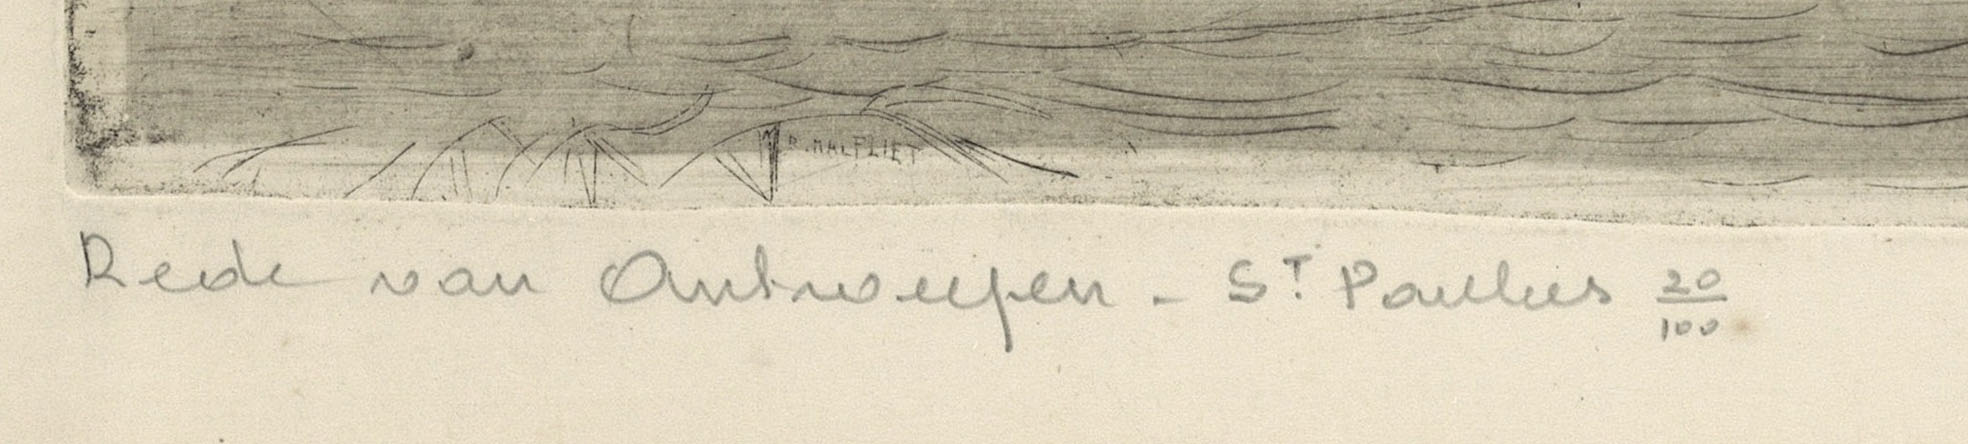 R. MALFLIET
Rede van Antwerpen - ST Paulus 20/100